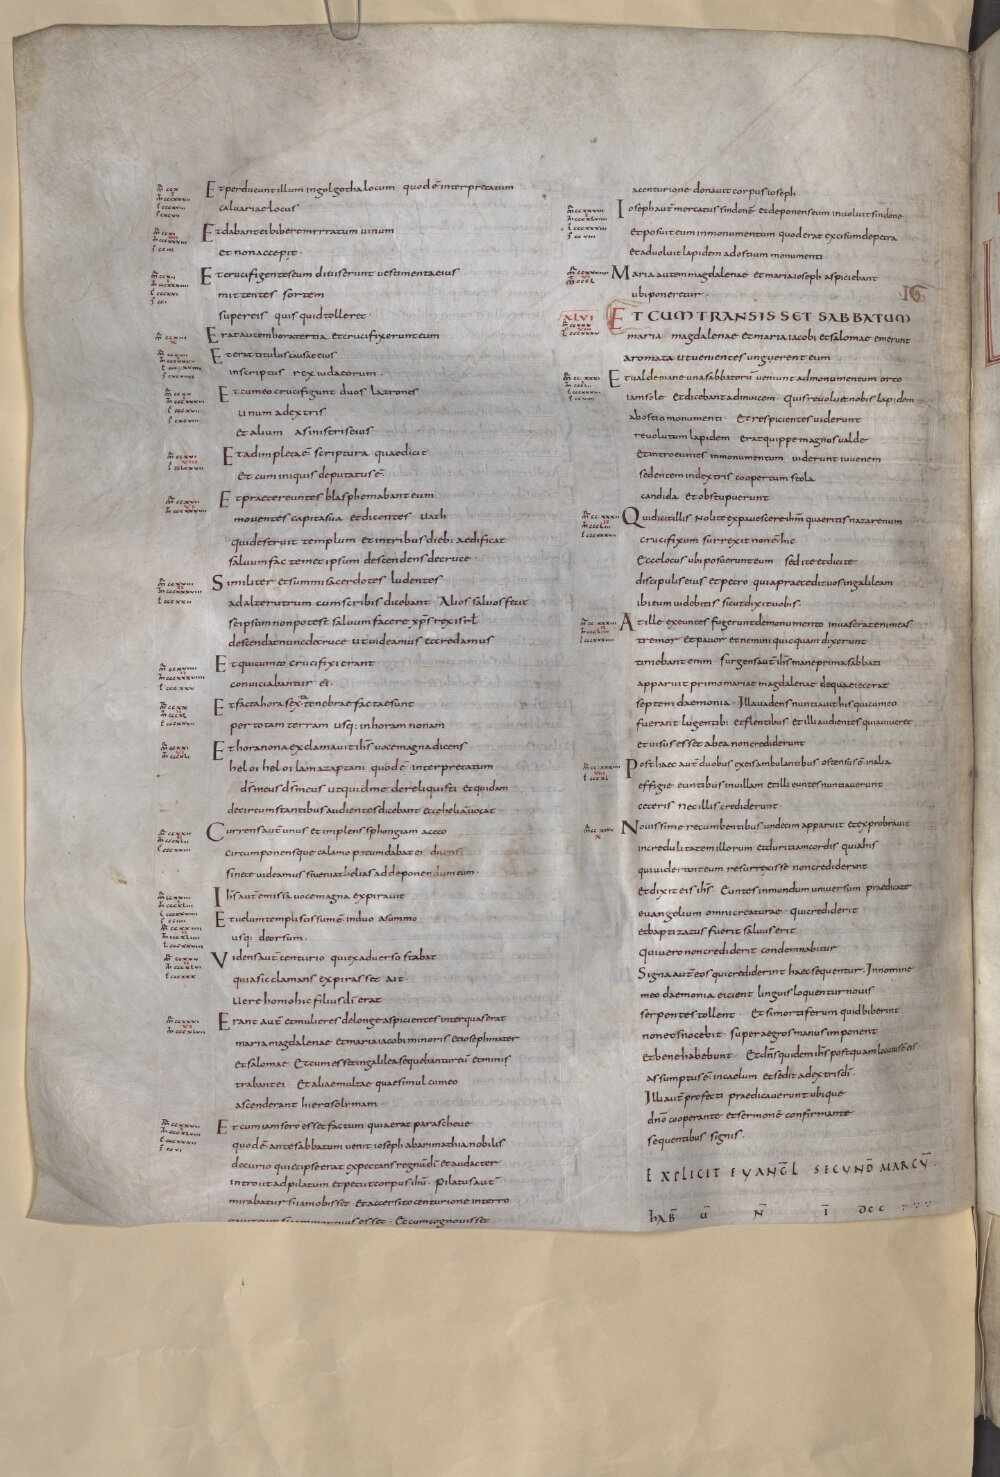 Et perducunt illum in golgotha locum quod ē interpretatum
calvariae locus
Et dabant ei bibere mirratum vinum
et non accepit
Et crucifigentes eum diviserunt vestimenta eius
mittentes sortem
super eis quis quid tolleret
Erat autem hora tertia et crucifixerunt eum
Et erat titulus causae eius
inscriptus rex iudaeorum
Et cum eo crucifigunt duos latrones
unum a dextris
et alium a sinistris eius
Et adimpleta ē scriptura quae dicit
Et cum iniquis deputatus ē
Et praetereuntes blasphemabant eum
moventes capita sua et dicentes vath
qui destruit templum et in tribus diebus aedificat
salvum fac temet ipsum descendens de cruce
Similiter et summi sacerdotes ludentes
ad alterutrum cum scribis dicebant Alios salvos fecit
se ipsum non potest salvum facere xp̄s rex isrl̄
descendat nunc de cruce ut videamus et credamus
Et qui cum eo crucifixi erant
conviciabantur ei
Et facta hora sexta tenebrae factae sunt
per totam terram usq: in horam nonam
Et hora nona exclamavit ihs̄ voce magna dicens
heloi heloi lama zaptani quod ē interpretatum
ds̄ meus ds̄ meus ut quid me dereliquisti et quidam
de circumstantibus audientes dicebant ecce heliā vocat
Currens aut̄ unus et implens sphongiam aceto
circumponensque calamo potum dabat ei dicens
sinete videamus si veniat helias ad deponendum eum
Ihs̄ aut̄ emissa voce magna expiravit
Et velum templi scissum ē in duo a summo
usq: deorsum
Videns aut̄ centurio qui ex adverso stabat
quia sic clamans expirasset ait
Vere homo hic filius dī erat
Erant aut̄ et mulieres de longe aspicientes inter quas erat
maria magdalenae et maria iacobi minoris et ioseph mater
et salomae Et cum esset in galilea sequebantur eū et minis
trabant ei Et aliae multae quae simul cum eo
ascenderant hierosolymam
Et cum iam sero esset factum quia erat parasceve
quod ē ante sabbatum venit ioseph ab arimathia nobilis
decurio qui et ipse erat expectans regnū dī et audacter
introiit ad pilatum et petiit corpus ihū Pilatus aut̄
mirabatur si iam obisset Et accersito centurione interro
gavit eum si iam mortuus esset Et cum cognovisset
a centurione donavit corpus ioseph
Ioseph aut̄ mercatus sindonē et deponens eum involvit sindone
et posuit eum in monumentum quod erat excisum de petra
et advolvit lapidem ad ostium monumenti
Maria autem magdalenae et maria ioseph aspiciebant
ubi poneretur
16
XLVI
ET CUM TRANSISSET SABBATUM
maria magdalenae et maria iacobi et salomae emerunt
aromata ut venientes unguerent eum
Et valde mane una sabbatorū veniunt ad monumentum orto
iam sole Et dicebant ad invicem Quis revolvet nobis lapidem
ab ostio monumenti Et respicientes viderunt
revolutum lapidem erat quippe magnus valde
Et introeuntes in monumentum viderunt iuvenem
sedentem in dextris coopertum stola
candida et obstupuerunt
Qui dicit illis Nolite expavescere ihm̄ quaeritis nazarenum
crucifixum surrexit non ē hic
Ecce locus ubi posuerunt eum sed ite et dicite
discipulis eius et petro quia praecedit vos in galileam
ibi eum videbitis sicut dixit vobis
At ille exeuntes fugerunt de monumento invaserat enim eas
tremor et pavor et nemini quicquam dixerunt
timebant enim Surgens aut̄ ihs̄ mane prima sabbati
apparuit primo mariae magdalenae de qua eiecerat
septem daemonia Illa vadens nuntiavit his qui cum eo
fuerant lugentibus et flentibus et illi audientes quia viveret
et visus esset ab ea non crediderunt
Post haec aut̄ duobus ex eis ambulantibus ostensus ē in alia
effigie euntibus in villam et illi euntes nuntiaverunt
ceteris nec illis crediderunt
Novissime recumbentibus undecim apparuit et exprobravit
incredulitatem illorum et duritiam cordis quia his
qui viderunt eum resurrexisse non crediderunt
Et dixit eis ihs̄ Euntes in mundum universum praedicate
evangelium omni creaturae qui crediderit
et baptizatus fuerit salvus erit
Qui vero non crediderit condemnabitur
Signa aut̄ eos qui crediderint haec sequentur In nomine
meo daemonia eicient linguis loquentur novis
serpentes tollent Et si mortiferum quid biberint
non eis nocebit super aegros manus imponent
et bene habebunt Et dn̄s quidem ihs̄ postquam locutus ē eis
assumptus ē in caelum et sedit a dextris dī
Illi aut̄ profecti praedicaverunt ubique
dnō cooperante et sermonē confirmante
sequentibus signis
EXPLICIT EVANGL̄ SECUND̄ MARCŪ
HAB̄ Ū N̄ Ī DCC